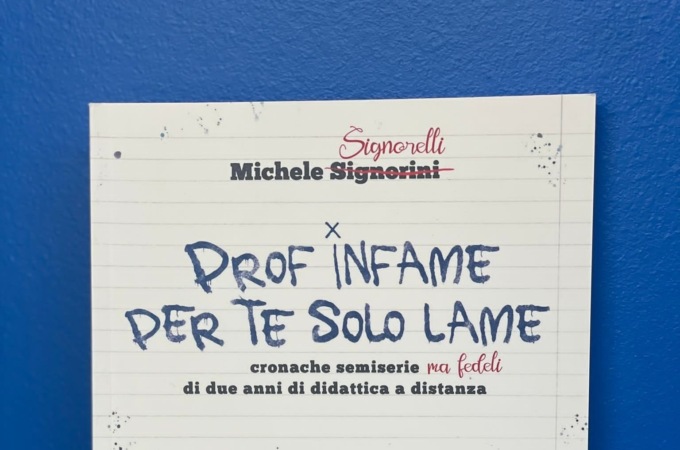 Signorelli
Michele Signorini
x
PROF INFAME
PER TE SOLO LAME
cronache semiserie ma fedeli
di due anni di didattica a distanza